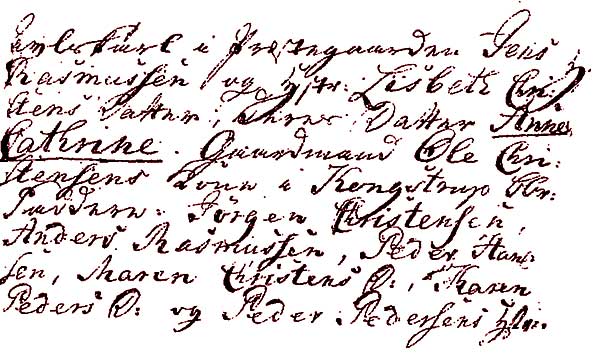 Avlskarl i Præstegaarden Jens
Rasmussen og Hstr: Lisbeth Chri-
stens Datter, deres Datter Anne
Cathrine. Gaardmand Ole Chri:
stensens Kone i Kongstrup bbr:
Faddere: Jörgen Christensen,
Anders Rasmussen, Peder Han-
sen, Maren Christens D:, Karen
Peders D: og Peder Pedersens